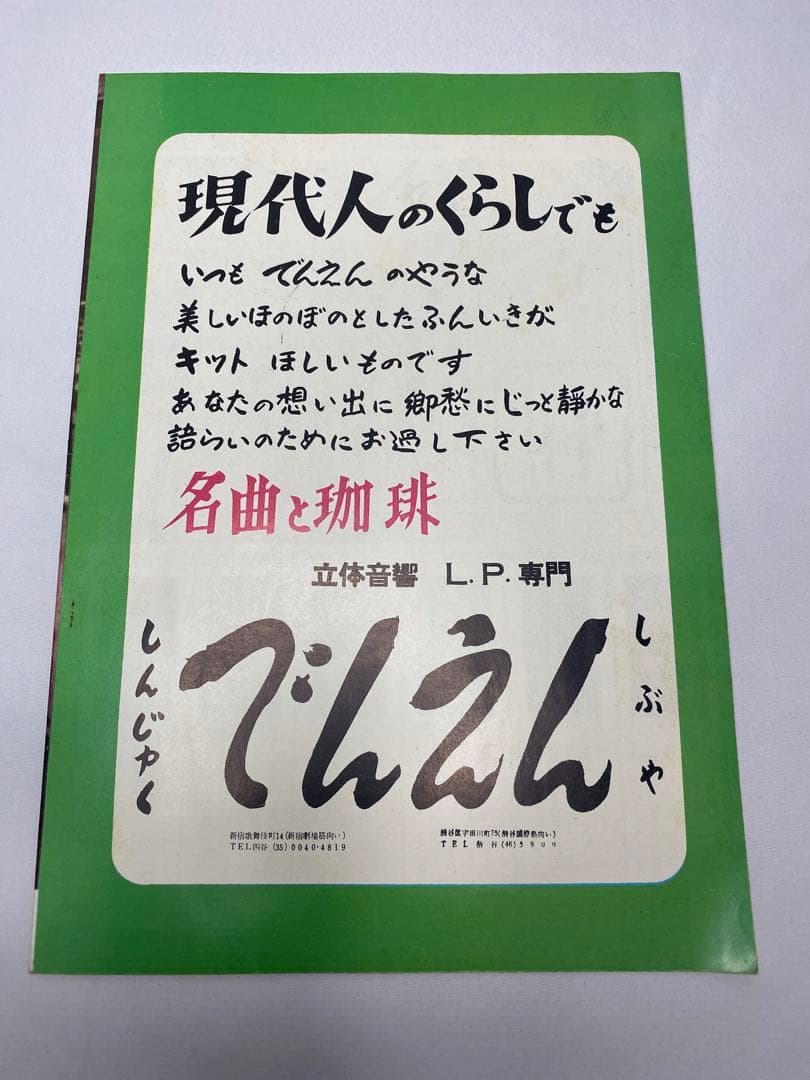 現代人のくらしでも
いつも でんえん のやうな
美しいほのぼのとしたふんいきが
キット ほしいものです
あなたの想い出に 郷愁にじっと靜かな
語らいのためにお過し下さい
名曲と珈琲
立体音響 L.P.専門
しんじゆく
でんえん
しぶや
新宿歌舞伎町14(新宿劇場筋向い)
TEL四谷 (35) 0040・4819
渋谷區宇田川町75(渋谷國際筋向い)
TEL 渋谷 (46) 5909